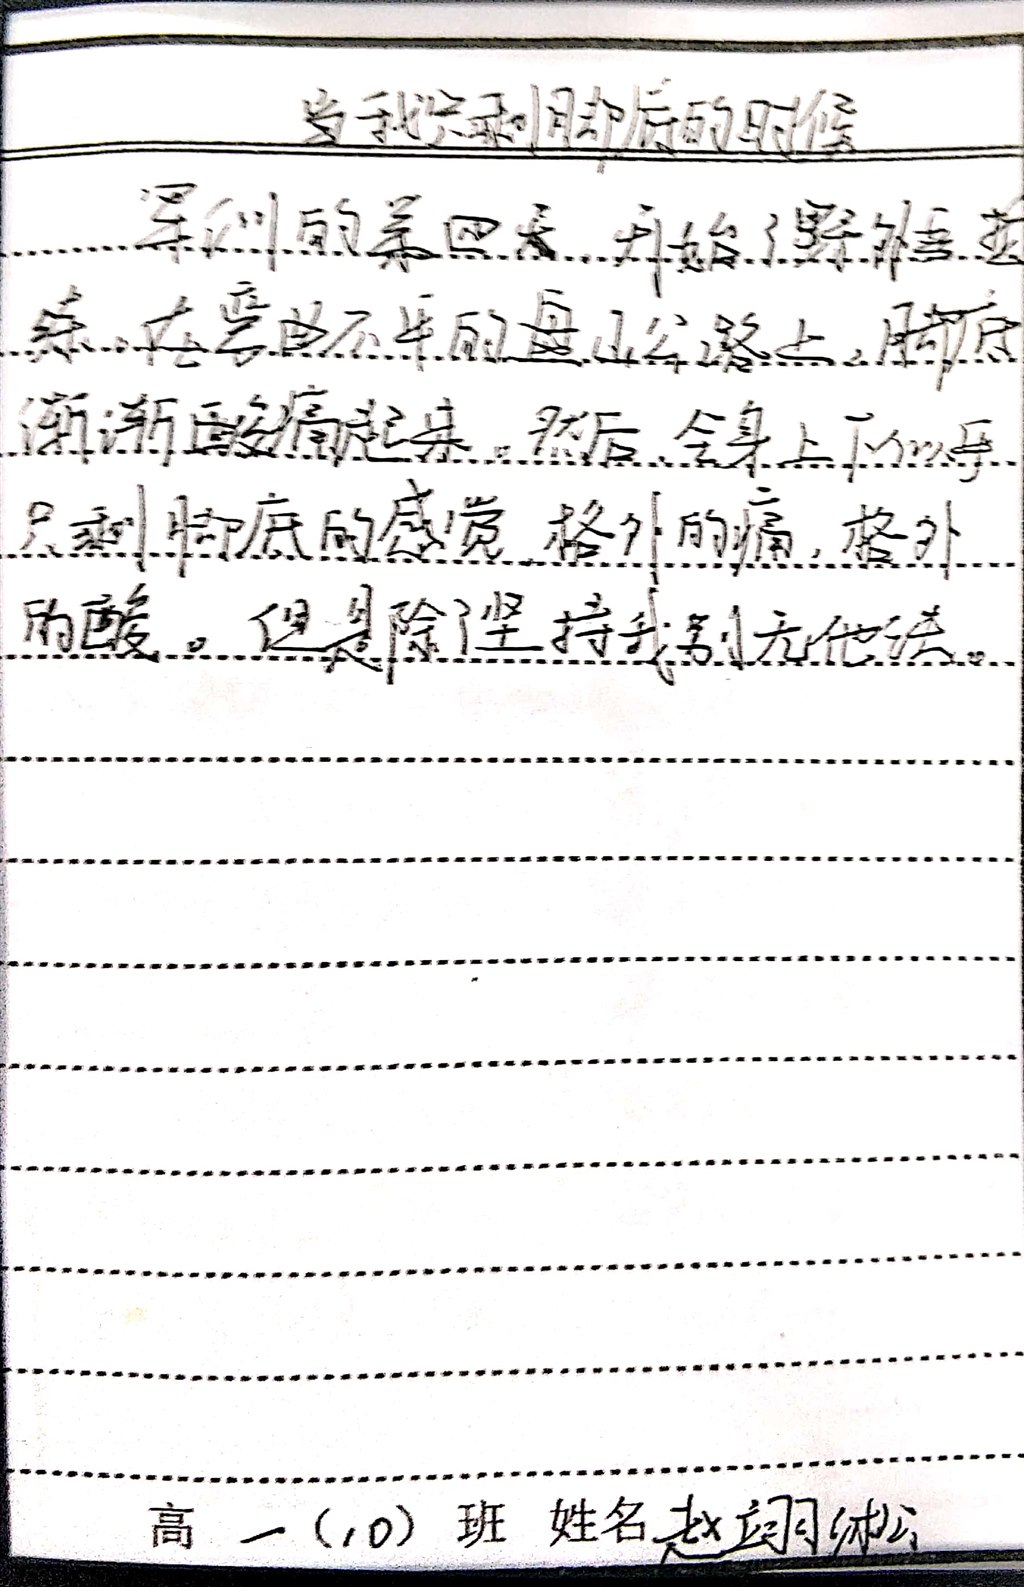 当我只剩脚底的时候
军训的第四天，开始了野外拉
练。在弯曲不平的盘山公路上，脚底
渐渐酸痛起来。然后，全身上下似乎
只剩脚底的感觉，格外的痛，格外
的酸。但是除了坚持我别无他法。
高一（10）班 姓名赵翊